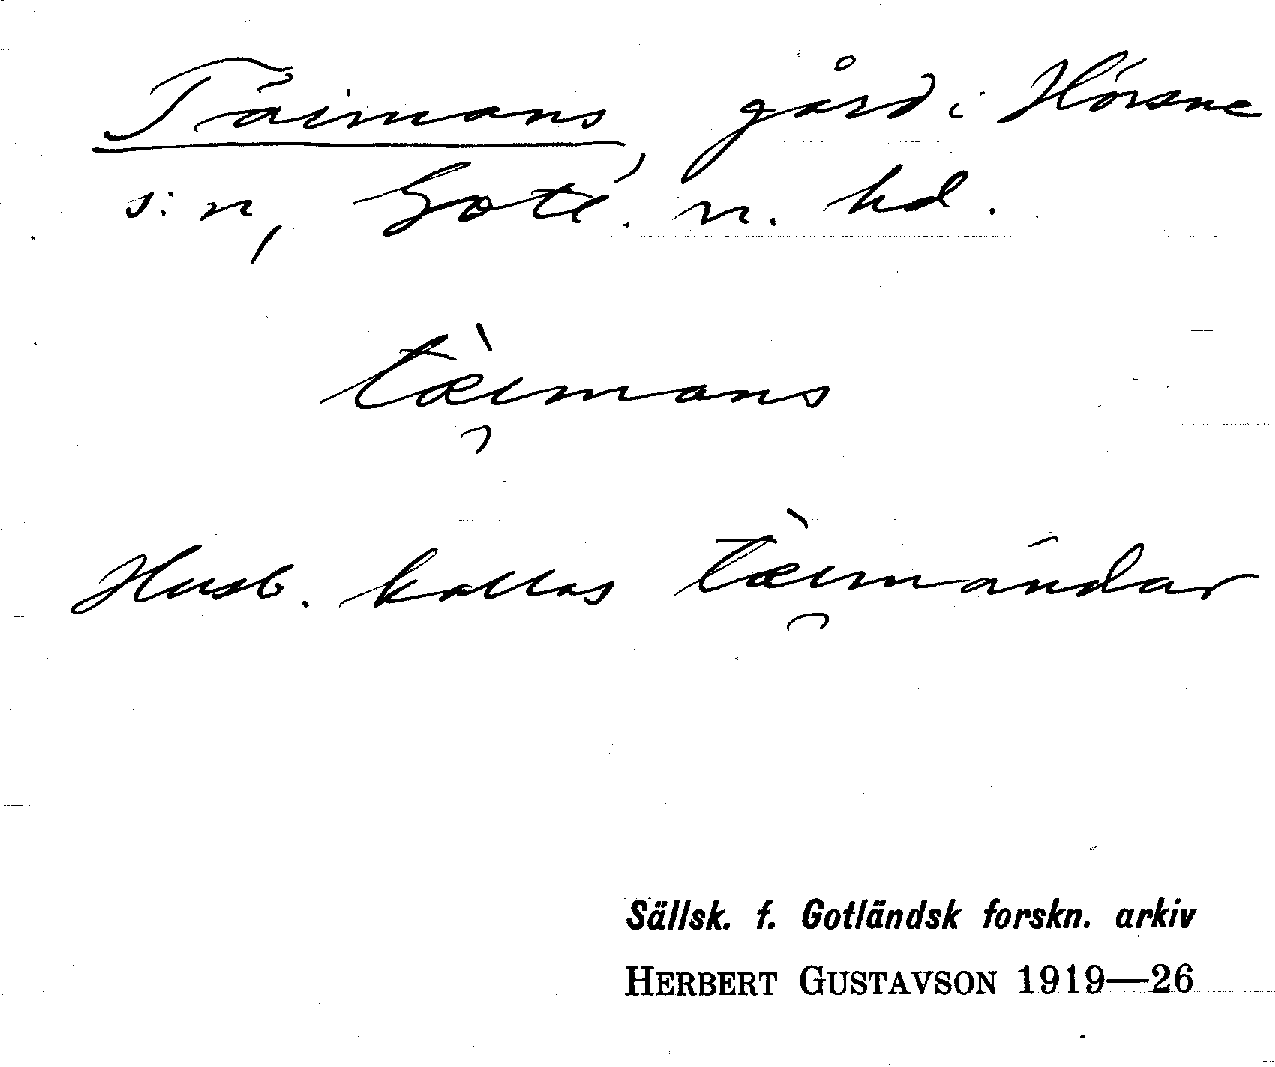 Täimans, gård i Hörsne
s:n, Gotl. n. hd.
tæ̀i̯mans
Husb. kallas tæ̀i̯māndar
Sällsk. f. Gotländsk forskn. arkiv
HERBERT GUSTAVSON 1919—26